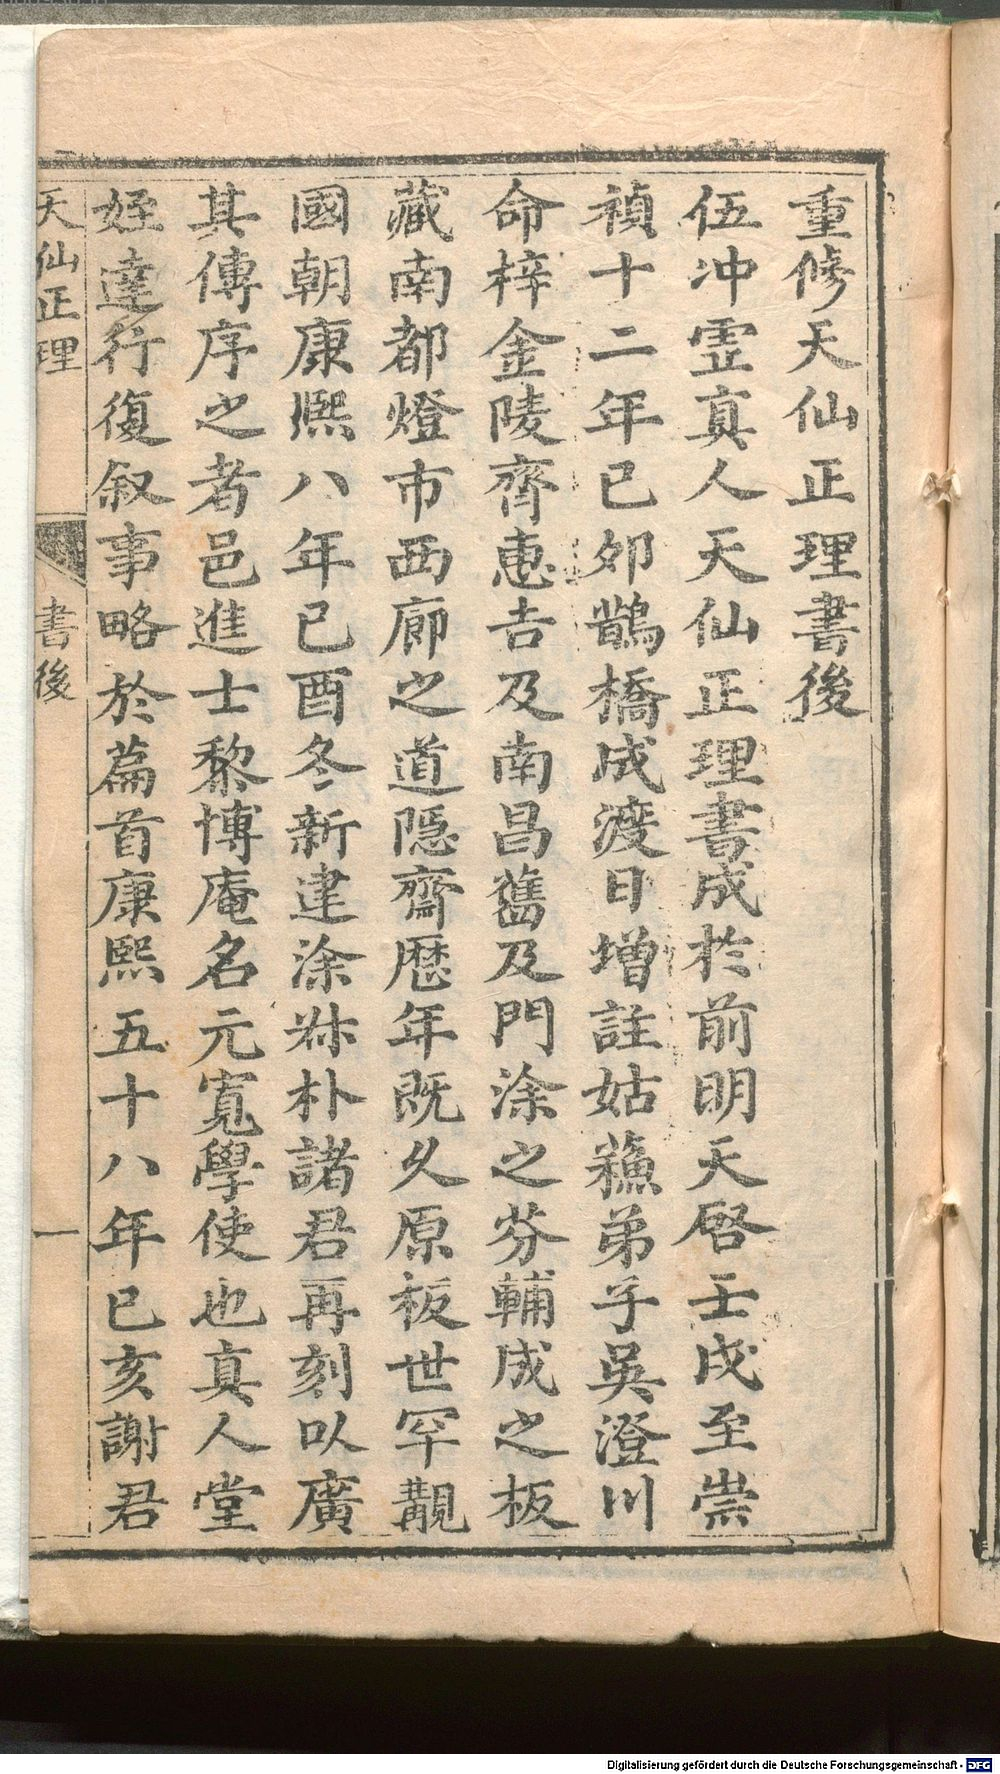 重修天仙正理書後
伍冲霊真人天仙正理書成於前明天啓壬戌至崇
禎十二年己夘鵲橋成渡日增註姑蘓弟子吳澄川
命梓金陵齊惠吉及南昌舊及門涂之芬輔成之板
藏南都燈市西廊之道隱齋歴年既乆原板世罕覯
國朝康熈八年己酉冬新建涂炑朴諸君再刻以廣
其傳序之者邑進士黎博庵名元寬學使也真人堂
姪達行復叙事略於篇首康熙五十八年己亥謝君
天仙正理 書後 一
Digitalisierung gefördert durch die Deutsche Forschungsgemeinschaft - DFG